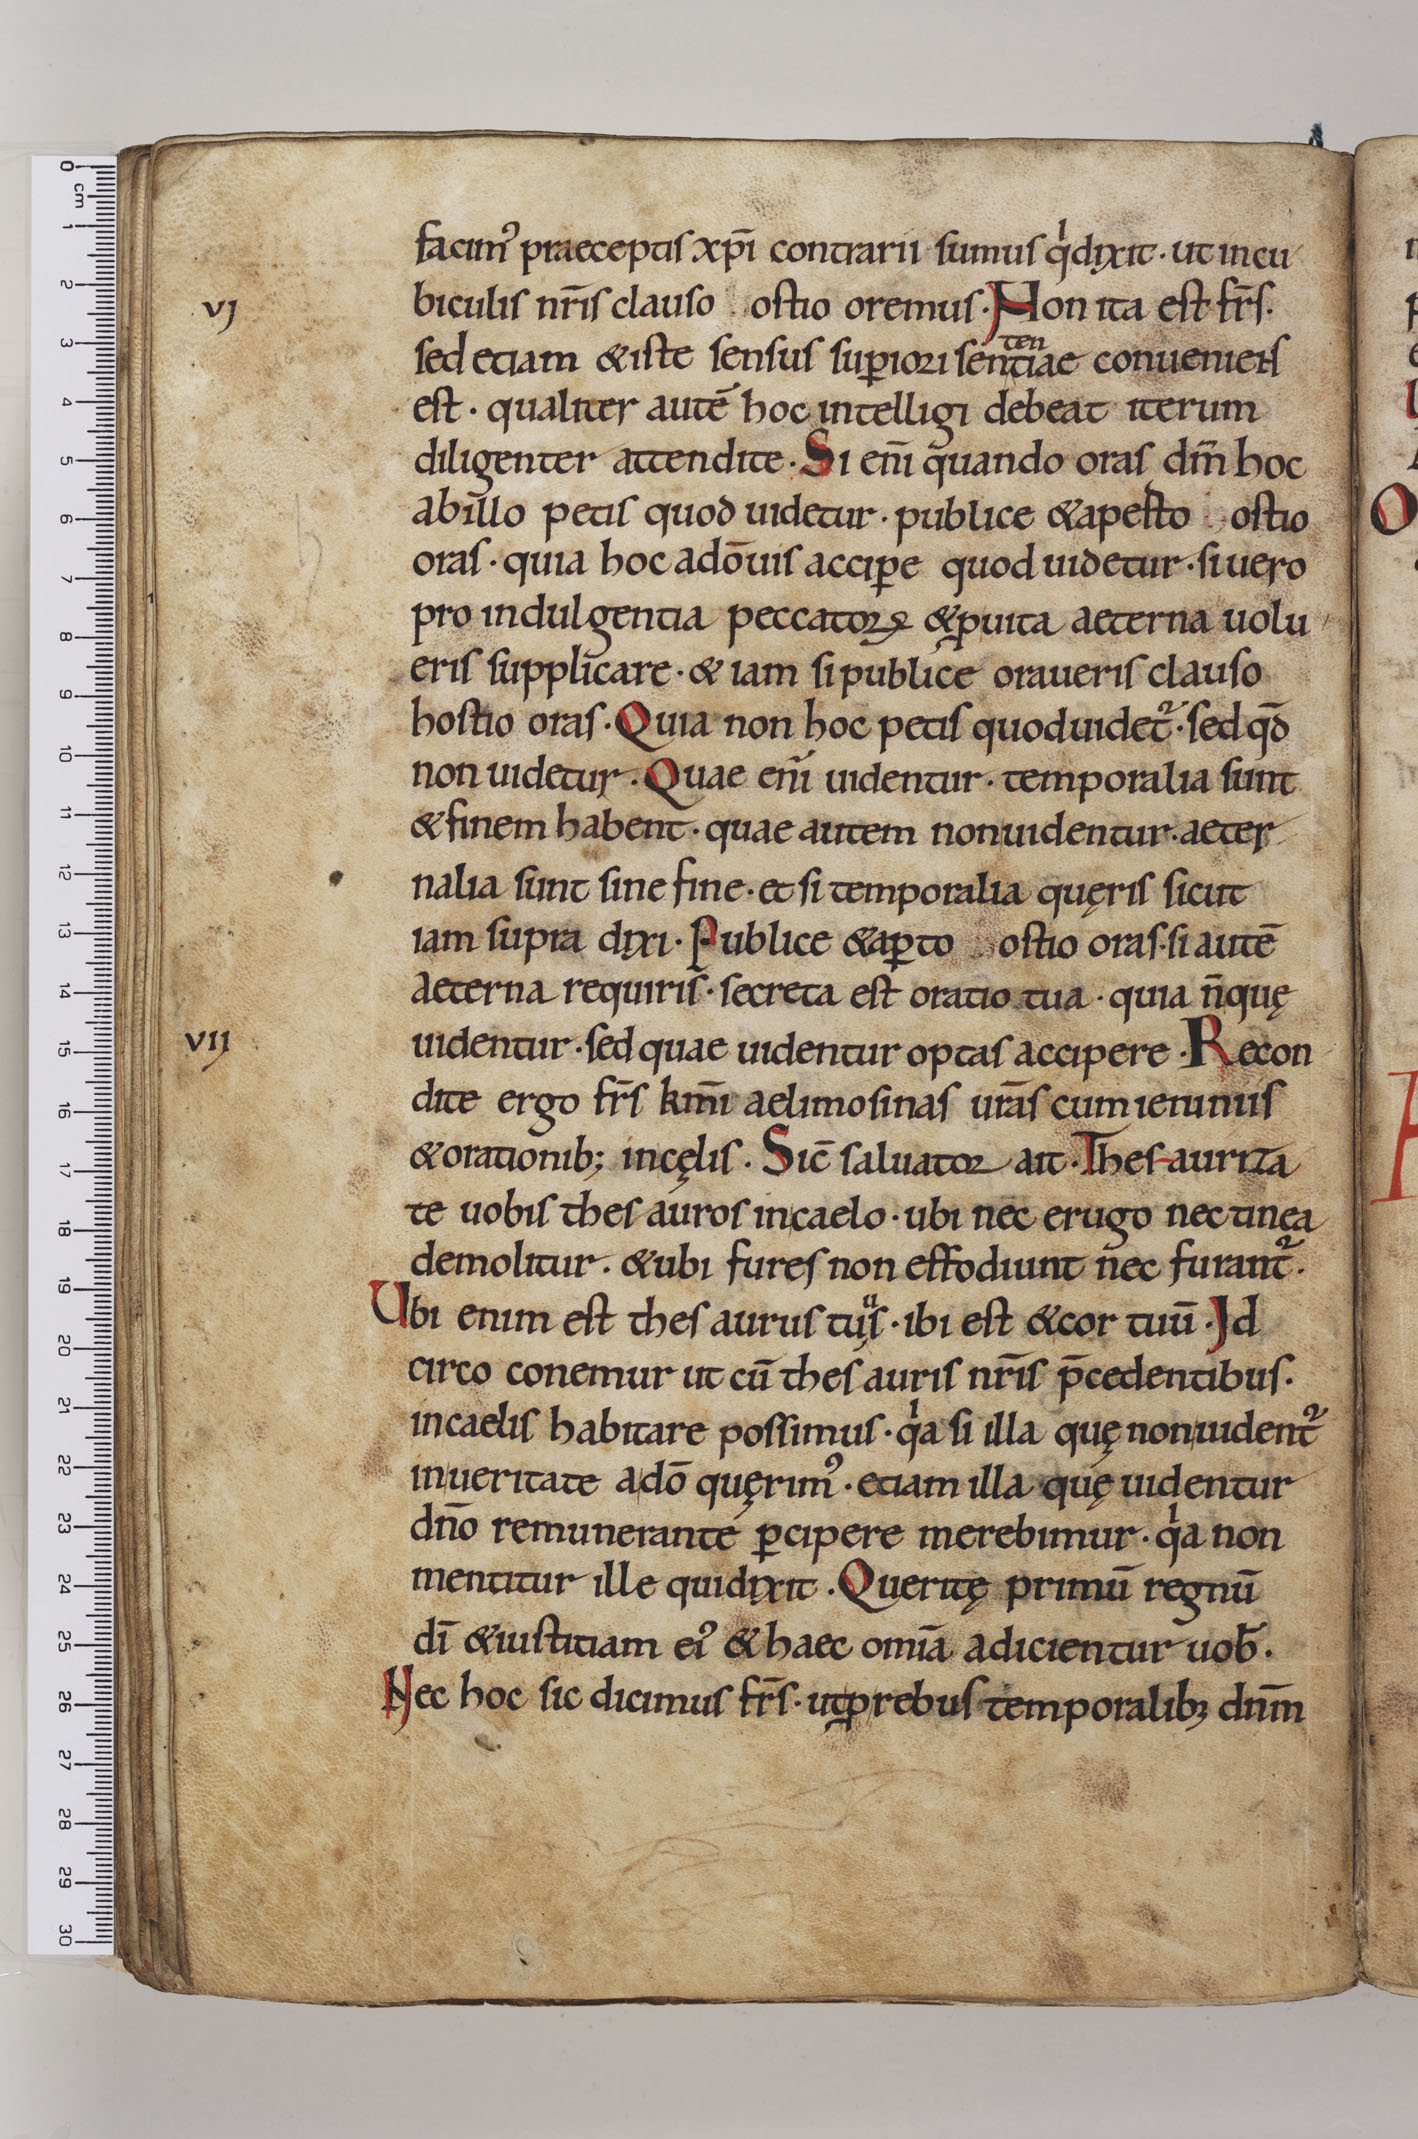 facim᷒ praeceptis xp̄i contrarii sumus qͥdixit · ut incu
vj
biculis nr̄is clauso ostio oremus · Non ita est fr̄s ·
ten
sed etiam & iste sensus sup̲iori sentiae conueniens
est · qualiter autē hoc intelligi debeat iterum
diligenter attendite · Si enī quando oras dm̄ hoc
ab illo petis quod uidetur · publice & apesto ostio
oras · quia hoc adō uis accip̲e quod uidetur · si uero
pro indulgentia peccatoꝝ & p̲ uita aeterna uolu
eris supplicare · & iam si publice oraueris clauso
hostio oras · Quia non hoc petis quod uidet᷑ · sed qd̄
non uidetur · Quae enī uidentur · temporalia sunt
& finem habent · quae autem non uidentur · aeter
nalia sunt sine fine · et si temporalia quęris sicut
iam supra dixi · Publice & ap̲to ostio oras · si autē
aeterna requiris · secreta est oratio tua · quia n̄ quę
vii
uidentur · sed quae uidentur optas accipere · Recon
dite ergo fr̄s km̄i aelimosinas ur̄as cum ieiuniis
& orationib; in cęlis · Sic̄ saluator ait · Thesauriza
te uobis thesauros in caelo · ubi nec erugo nec tinea
demolitur · & ubi fures non effodiunt nec furant᷑ ·
Ubi enim est thesaurus tuͧs · ibi est & cor tuū · Id
circo conemur ut cū thesauris nr̄is p̄cedentibus ·
in caelis habitare possimus · qͥa si illa quę non uident᷑
in ueritate adō quęrim᷒ · etiam illa quę uidentur
dn̄o remunerante p̲cipere merebimur · qͥa non
mentitur ille qui dixit · Queritę primū regnū
dī & iustitiam ei᷒ & haec omīa adicientur uob̄ ·
Nec hoc sic dicimus fr̄s · ut p̲ rebus temporalibꝫ dn̄m